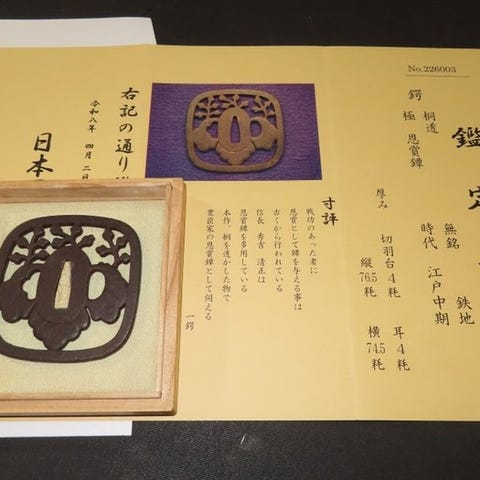 No.226003
鑑定
鍔 桐透
極 恩賞鐔
無銘 鉄地
時代 江戸中期
厚み 切羽台4粍 耳4粍
縦76.5粍 横74.5粍
寸評
戦功のあった者に
恩賞として鐔を与える事は
古くから行われている
信長 秀吉 清正は
恩賞鐔を多用している
本作、桐を透かした物で
豊臣家の恩賞鐔として伺える
一鍔
右記の通り
令和八年 四月二日
日本